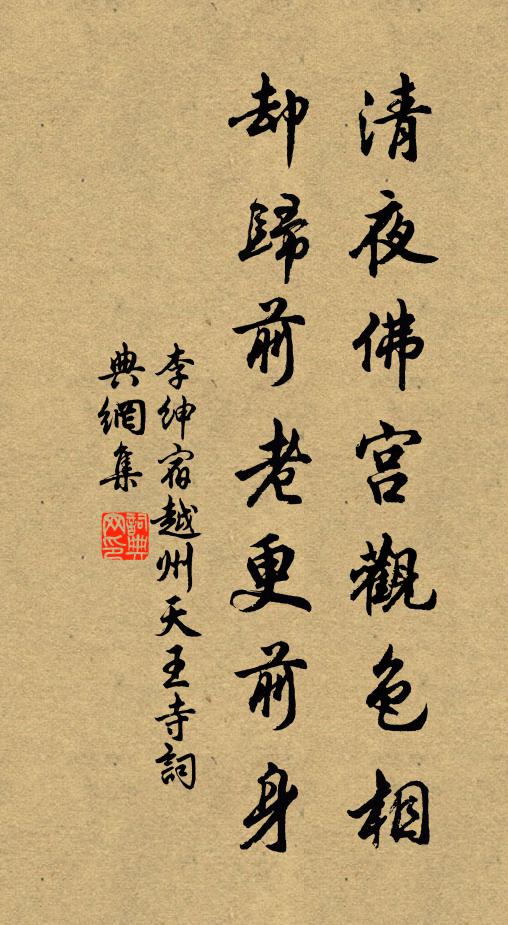 清夜佛宫觀色相
却歸前老更前身
李紳宿越州天王寺詞
典網集
詞典
网印